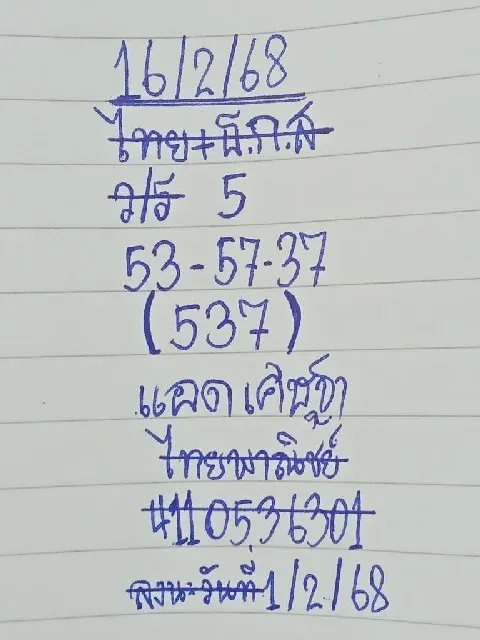 16/2/68
ไทย+ธ.ก.ส
ว/ร 5
53-57-37
(537)
แอด เศิษฐา
ไทยพาณิชย์
4110536301
ลงนะวันที่ 1/2/68